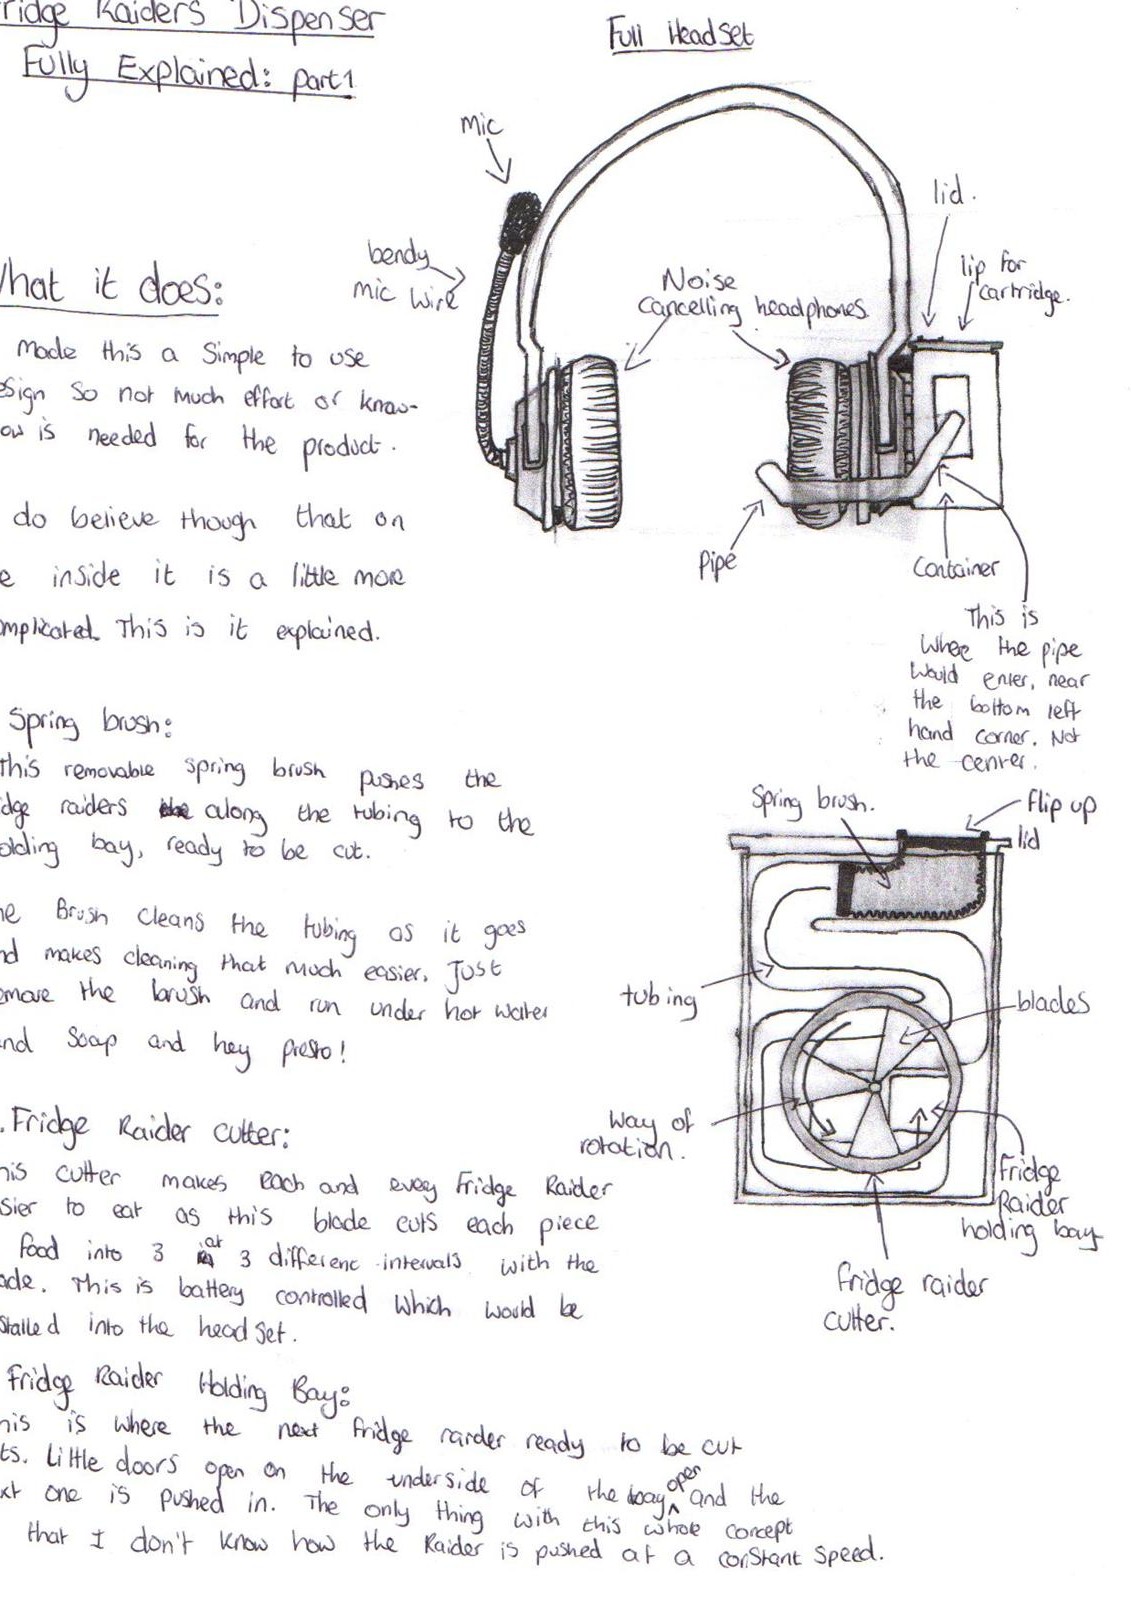 ridge Raiders Dispenser
Fully Explained: part 1
Full Headset
mic
lid.
lip for
cartridge.
bendy
mic wire
Noise
cancelling headphones
pipe
Container
This is
where the pipe
would enter, near
the bottom left
hand corner. Not
the center.
hat it does:
made this a Simple to use
esign So not much effort or know-
ow is needed for the product.
do believe though that on
e inside it is a little more
mplicated. This is it explained.
Spring brush:
this removable spring brush pushes the
idge raiders along the tubing to the
olding bay, ready to be cut.
he Brush cleans the tubing as it goes
nd makes cleaning that much easier. Just
emove the brush and run under hot water
nd Soap and hey presto!
Spring brush.
flip up
lid
tubing
blades
way of
rotation.
Fridge
Raider
holding bay
fridge raider
cutter.
. Fridge Raider cutter:
his cutter makes each and every Fridge Raider
sier to eat as this blade cuts each piece
food into 3 at 3 different intervals with the
ade. This is battery controlled which would be
stalled into the headset.
Fridge Raider Holding Bay:
his is where the next fridge raider ready to be cut
ts. Little doors open on the underside of the bay open and the
xt one is pushed in. The only thing with this whole concept
that I don't know how the Raider is pushed at a constant speed.